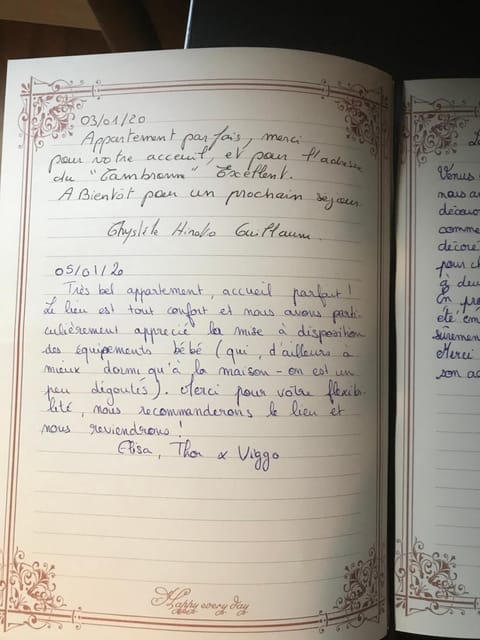 03/01/20
Appartement parfais, merci
pour votre acceuil, et pour l'adresse
du "Cambronne" Excellent.
A Bientôt pour un prochain sejour
Guillaume
05/01/20
Très bel appartement, accueil parfait !
Le lieu est tout confort et nous avons parti-
culièrement apprécié la mise à disposition
des équipements bébé (qui, d'ailleurs a
mieux dormi qu'à la maison - on est un
peu dégoutés). Merci pour votre flexibi-
lité, nous recommanderons le lieu et
nous reviendrons !
Elisa, Thor & Viggo
Happy every day
Venus
nous av
décou
comme
décoré
pour ch
à deu
En pro
été ém
sûremen
Merci
son ac